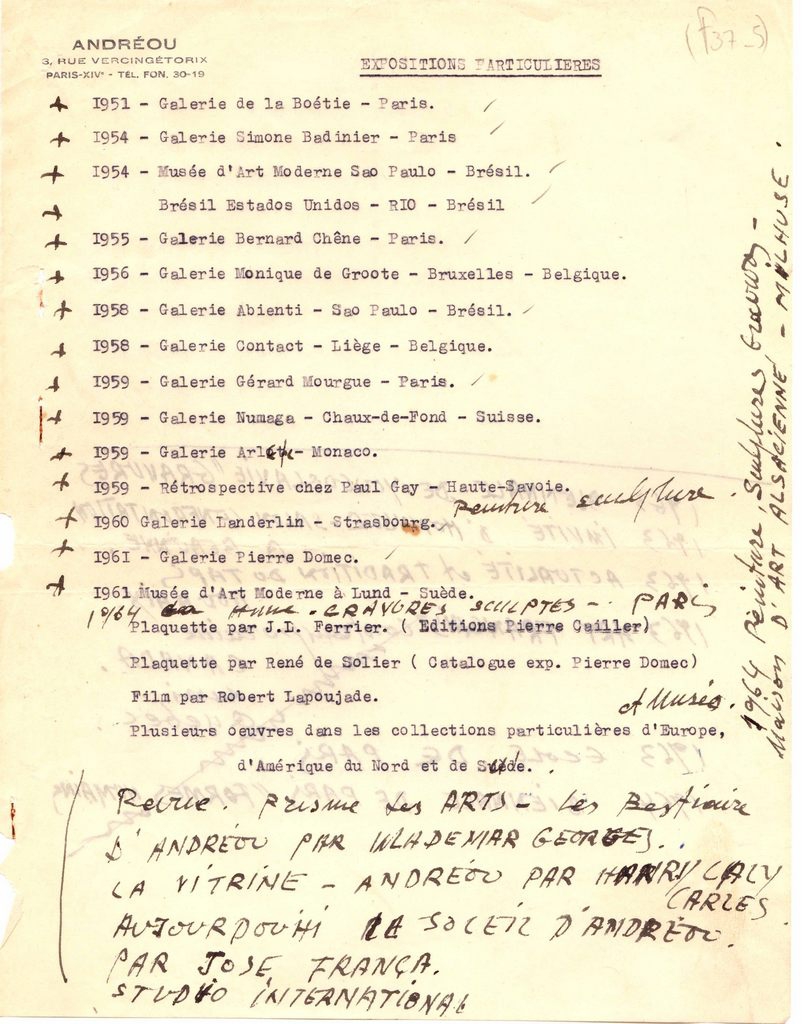 (F37_5)
ANDRÉOU
3, RUE VERCINGÉTORIX
PARIS-XIVᵉ - TÉL. FON. 30-19
EXPOSITIONS PARTICULIERES
+ I951 - Galerie de la Boétie - Paris.
+ I954 - Galerie Simone Badinier - Paris
+ I954 - Musée d'Art Moderne Sao Paulo - Brésil.
+ Brésil Estados Unidos - RIO - Brésil
+ I955 - Galerie Bernard Chêne - Paris.
+ I956 - Galerie Monique de Groote - Bruxelles - Belgique.
+ I958 - Galerie Abienti - Sao Paulo - Brésil.
+ I958 - Galerie Contact - Liège - Belgique.
+ I959 - Galerie Gérard Mourgue - Paris.
+ I959 - Galerie Numaga - Chaux-de-Fond - Suisse.
+ I959 - Galerie - Monaco.
+ I959 - Rétrospective chez Paul Gay - Haute-Savoie.
Peinture sculpture.
+ I960 Galerie Landerlin - Strasbourg.
+ I96I - Galerie Pierre Domec.
+ I961 Musée d'Art Moderne à Lund - Suède.
1964 HUNE - GRAVURES SCULPTES - PARIS
Plaquette par J.L. Ferrier. ( Editions Pierre Cailler)
Plaquette par René de Solier ( Catalogue exp. Pierre Domec)
Film par Robert Lapoujade.
et Musées.
Plusieurs oeuvres dans les collections particulières d'Europe,
d'Amérique du Nord et de Suède.
Revue. Prisme des ARTS - Les Bestiaire
D'ANDRÉOU PAR WLADEMAR GEORGES.
LA VITRINE - ANDRÉOU PAR HARRY CALY
CARLES
AUJOURDOUHI LE SOLEIL D'ANDRÉOU.
PAR JOSE FRANÇA.
STUDIO INTERNATIONAL
1964 Peinture, Sculptures Gravures -
Maison D'ART ALSACIENNE - MULHUSE.